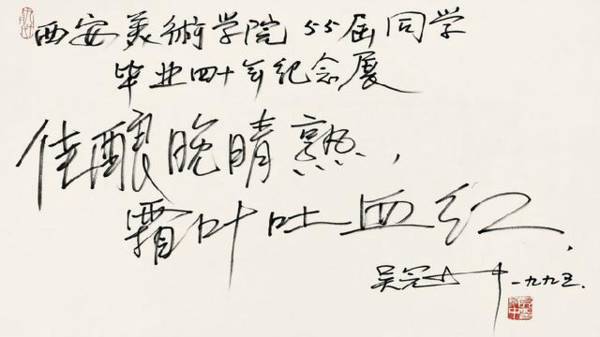 西安美術学院55届同学
毕业四十年纪念展
佳酿晚晴熟，
霜叶吐血红，
吴冠中 一九九五.